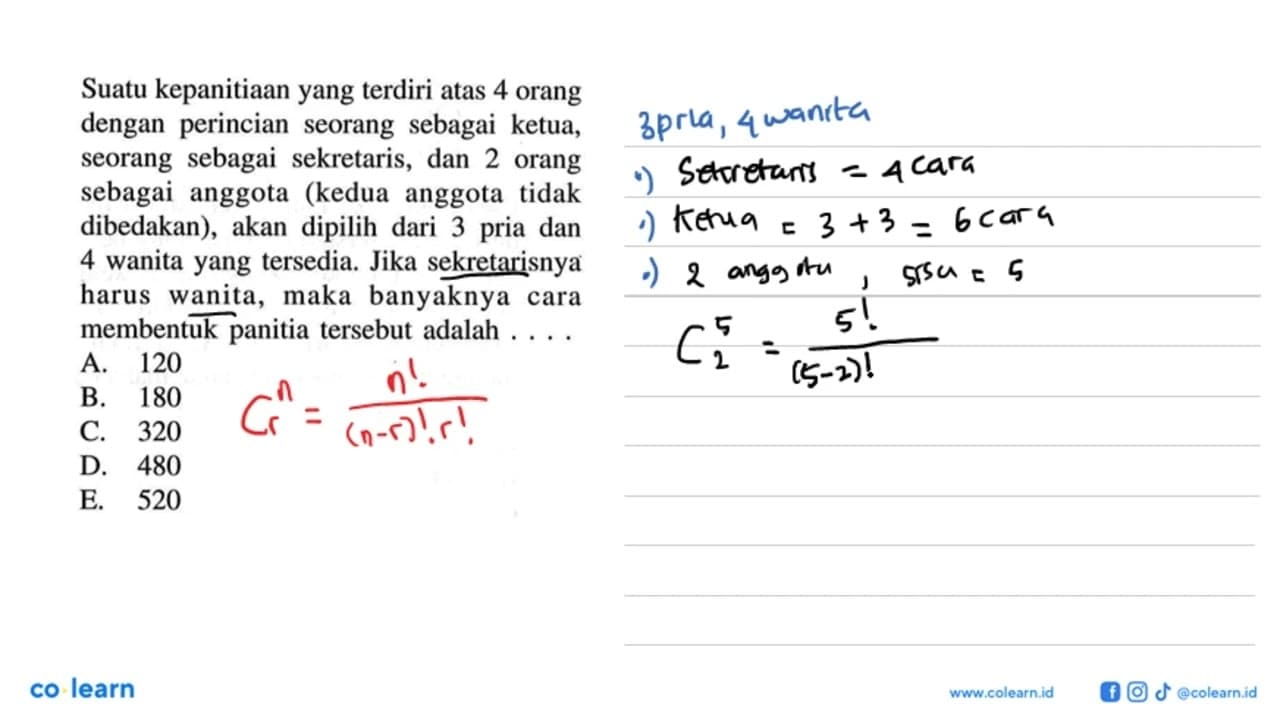 Suatu kepanitiaan yang terdiri atas 4 orang
dengan perincian seorang sebagai ketua,
seorang sebagai sekretaris, dan 2 orang
sebagai anggota (kedua anggota tidak
dibedakan), akan dipilih dari 3 pria dan
4 wanita yang tersedia. Jika sekretarisnya
harus wanita, maka banyaknya cara
membentuk panitia tersebut adalah . . . .
A. 120
B. 180
C. 320
D. 480
E. 520
C_r^n = n! / (n-r)!.r!
3 pria, 4 wanita
•) Sekretaris = 4 cara
•) Ketua = 3 + 3 = 6 cara
•) 2 anggota , sisa = 5
C_2^5 = 5! / (5-2)!
co learn
www.colearn.id @colearn.id